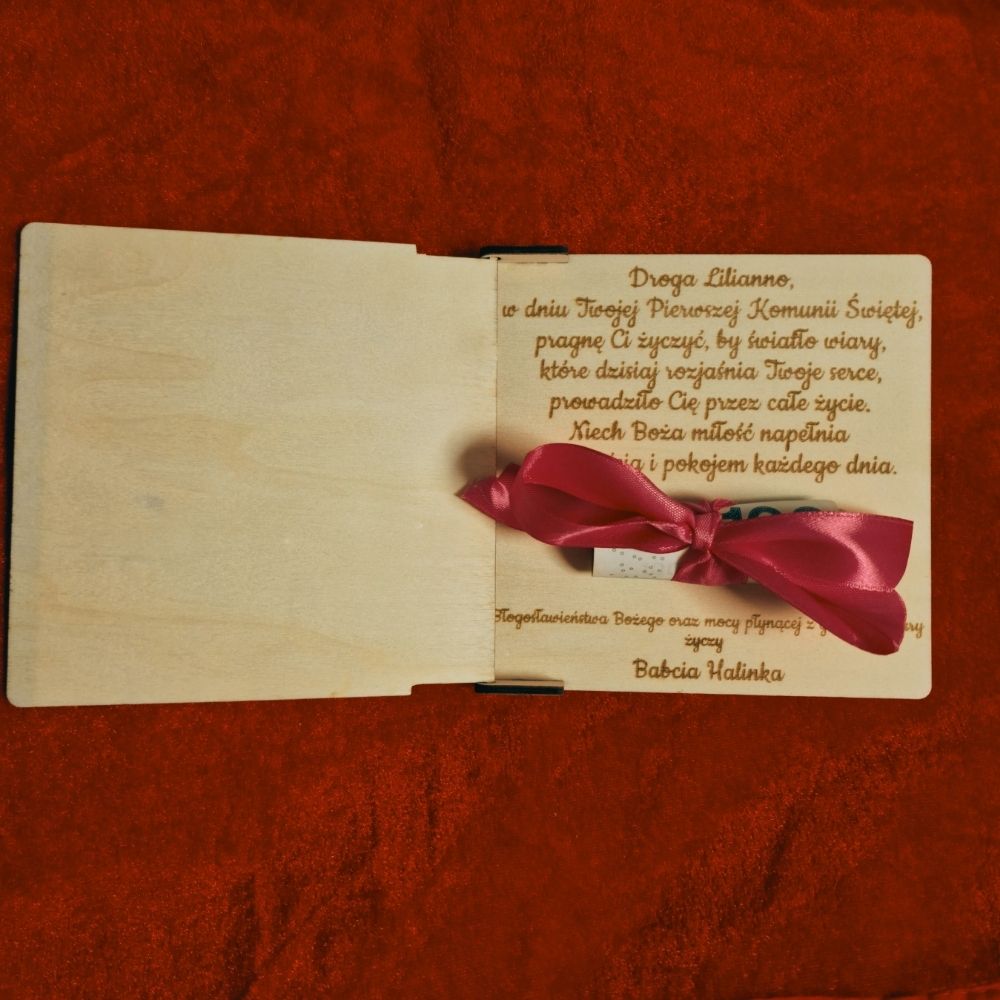 Droga Lilianno,
w dniu Twojej Pierwszej Komunii Świętej,
pragnę Ci życzyć, by światło wiary,
które dzisiaj rozjaśnia Twoje serce,
prowadziło Cię przez całe życie.
Niech Boża miłość napełnia
i pokojem każdego dnia.
100
Błogosławieństwa Bożego oraz mocy płynącej z
życzy
Babcia Halinka